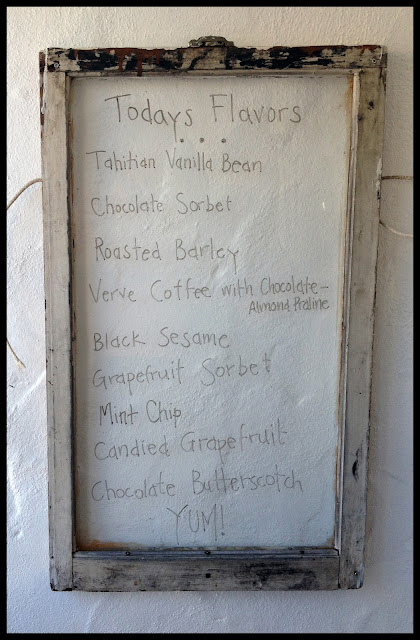 Todays Flavors
...
Tahitian Vanilla Bean
Chocolate Sorbet
Roasted Barley
Verve Coffee with Chocolate-
Almond Praline
Black Sesame
Grapefruit Sorbet
Mint Chip
Candied Grapefruit
Chocolate Butterscotch
YUM!